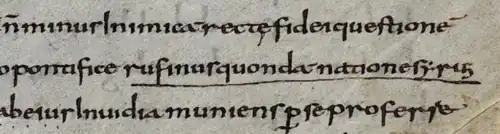 n̄ minus Inimica recte fidei questionē
o pontifice rufinus quondā natione s;rius
abeius Inuidia muniens p̱ se proferre